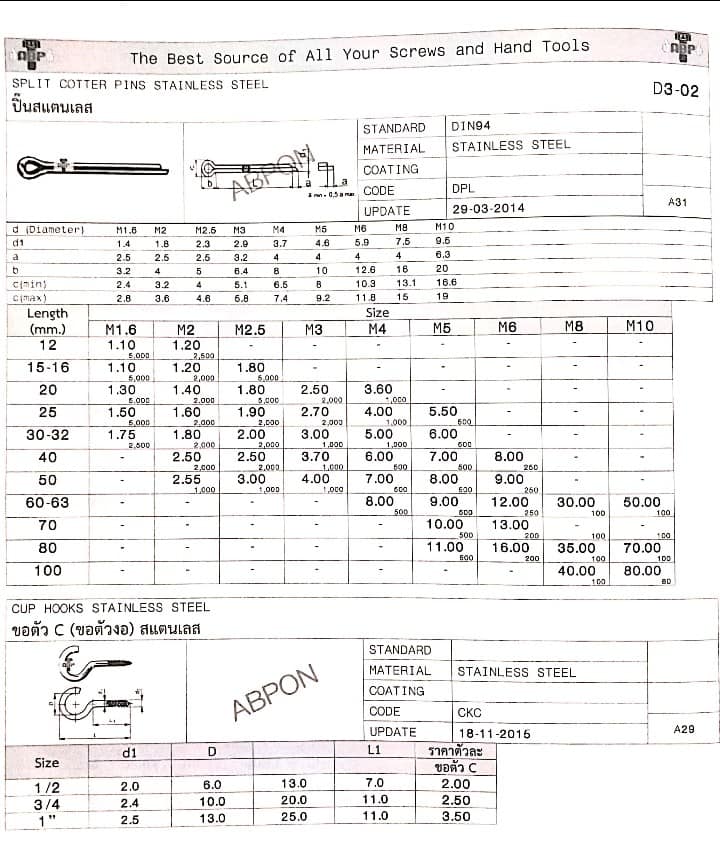 ABP The Best Source of All Your Screws and Hand Tools ABP
SPLIT COTTER PINS STAINLESS STEEL D3-02
ปิ๊นสแตนเลส
STANDARD DIN94
MATERIAL STAINLESS STEEL
COATING
CODE DPL
UPDATE 29-03-2014 A31
ABPON
b a a
a min = 0,5 a max
d (Diameter) M1.6 M2 M2.5 M3 M4 M5 M6 M8 M10
d1 1.4 1.8 2.3 2.9 3.7 4.6 5.9 7.5 9.5
a 2.5 2.5 2.5 3.2 4 4 4 4 6.3
b 3.2 4 5 6.4 8 10 12.6 16 20
c(min) 2.4 3.2 4 5.1 6.5 8 10.3 13.1 16.6
c(max) 2.8 3.6 4.6 5.8 7.4 9.2 11.8 15 19
Length (mm.) Size
M1.6 M2 M2.5 M3 M4 M5 M6 M8 M10
12 1.10 1.20 - - - - - - -
5,000 2,500
15-16 1.10 1.20 1.80 - - - - - -
5,000 2,000 5,000
20 1.30 1.40 1.80 2.50 3.60 - - - -
5,000 2,000 5,000 2,000 1,000
25 1.50 1.60 1.90 2.70 4.00 5.50 - - -
5,000 2,000 2,000 2,000 1,000 500
30-32 1.75 1.80 2.00 3.00 5.00 6.00 - - -
2,500 2,000 2,000 1,000 1,000 500
40 - 2.50 2.50 3.70 6.00 7.00 8.00 - -
2,000 2,000 1,000 500 500 250
50 - 2.55 3.00 4.00 7.00 8.00 9.00 - -
1,000 1,000 1,000 500 500 250
60-63 - - - - 8.00 9.00 12.00 30.00 50.00
500 500 250 100 100
70 - - - - - 10.00 13.00 - -
500 200 100 100
80 - - - - - 11.00 16.00 35.00 70.00
500 200 100 100
100 - - - - - - - 40.00 80.00
100 80
CUP HOOKS STAINLESS STEEL
ขอตัว C (ขอตัวงอ) สแตนเลส
STANDARD
MATERIAL STAINLESS STEEL
COATING
CODE CKC
UPDATE 18-11-2015 A29
ABPON
D L1 L
Size d1 D L1 ราคาตัวละ
ขอตัว C
1/2 2.0 6.0 13.0 7.0 2.00
3/4 2.4 10.0 20.0 11.0 2.50
1" 2.5 13.0 25.0 11.0 3.50